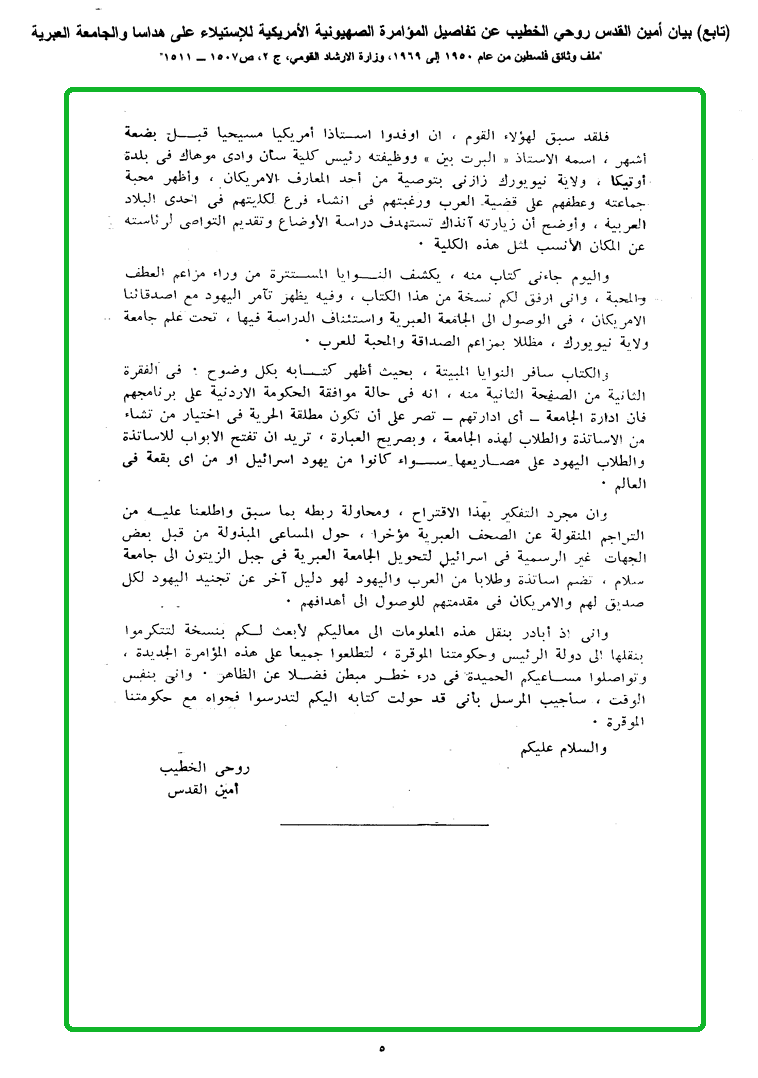 (تابع) بيان أمين القدس روحي الخطيب عن تفاصيل المؤامرة الصهيونية الأمريكية للإستيلاء على هداسا والجامعة العبرية
"ملف وثائق فلسطين من عام ١٩٥٠ إلى ١٩٦٩، وزارة الارشاد القومي، ج ٢، ص ١٥٠٧ ــ ١٥١١"
فلقد سبق لهؤلاء القوم ، ان اوفدوا استاذا أمريكيا مسيحيا قبل بضعة
أشهر ، اسمه الاستاذ « البرت بين » ووظيفته رئيس كلية سان وادى موهاك فى بلدة
أوتيكا ، ولاية نيويورك زارنى بتوصية من أحد المعارف الامريكان ، وأظهر محبة
جماعته وعطفهم على قضية العرب ورغبتهم فى انشاء فرع لكليتهم فى احدى البلاد
العربية ، وأوضح أن زيارته آنذاك تستهدف دراسة الأوضاع وتقديم التواصى لرئاسته
عن المكان الأنسب لمثل هذه الكلية ٠
واليوم جاءنى كتاب منه ، يكشف النوايا المستترة من وراء مزاعم العطف
والمحبة ، وانى ارفق لكم نسخة من هذا الكتاب ، وفيه يظهر تآمر اليهود مع اصدقائنا
الامريكان ، فى الوصول الى الجامعة العبرية واستئناف الدراسة فيها ، تحت علم جامعة
ولاية نيويورك ، مظللا بمزاعم الصداقة والمحبة للعرب ٠
والكتاب سافر النوايا المبيتة ، بحيث أظهر كتابه بكل وضوح ٠ فى الفقرة
الثانية من الصفحة الثانية منه ، انه فى حالة موافقة الحكومة الاردنية على برنامجهم
فان ادارة الجامعة ــ أى ادارتهم ــ تصر على أن تكون مطلقة الحرية فى اختيار من تشاء
من الاساتذة والطلاب لهذه الجامعة ، وبصريح العبارة ، تريد ان تفتح الابواب للاساتذة
والطلاب اليهود على مصاريعها سواء كانوا من يهود اسرائيل او من اى بقعة فى
العالم ٠
وان مجرد التفكير بهذا الاقتراح ، ومحاولة ربطه بما سبق واطلعنا عليه من
التراجم المنقولة عن الصحف العبرية مؤخرا ، حول المساعى المبذولة من قبل بعض
الجهات غير الرسمية فى اسرائيل لتحويل الجامعة العبرية فى جبل الزيتون الى جامعة
سلام ، تضم اساتذة وطلابا من العرب واليهود لهو دليل آخر عن تجنيد اليهود لكل
صديق لهم والامريكان فى مقدمتهم للوصول الى أهدافهم ٠
وانى اذ أبادر بنقل هذه المعلومات الى معاليكم لأبعث لكم بنسخة لتتكرموا
بنقلها الى دولة الرئيس وحكومتنا الموقرة ، لتطلعوا جميعا على هذه المؤامرة الجديدة ،
وتواصلوا مساعيكم الحميدة فى درء خطر مبطن فضلا عن الظاهر ٠ وانى بنفس
الوقت ، سأجيب المرسل بأنى قد حولت كتابه اليكم لتدرسوا فحواه مع حكومتنا
الموقرة ٠
والسلام عليكم
روحى الخطيب
أمين القدس
٥